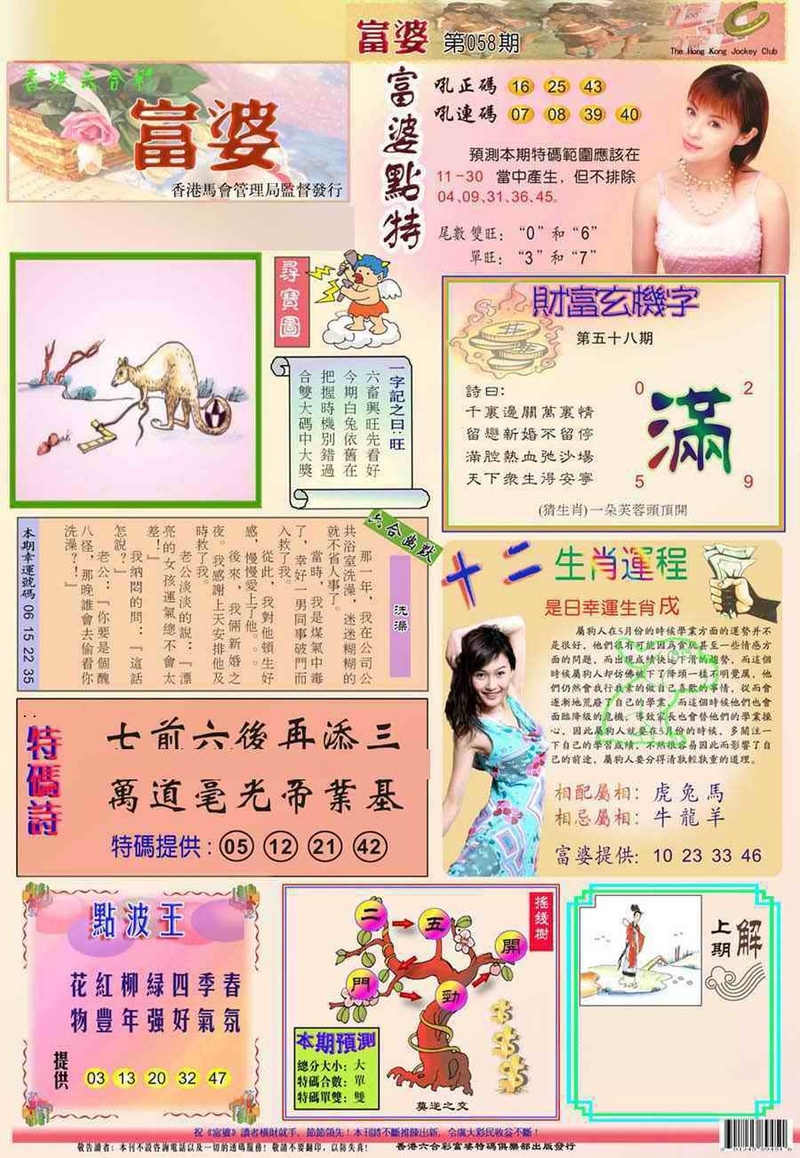 富婆 第058期
The Hong Kong Jockey Club
香港六合彩
富婆
香港馬會管理局監督發行
富婆點特
吼正碼 16 25 43
吼連碼 07 08 39 40
預測本期特碼範圍應該在
11-30 當中產生，但不排除
04,09,31,36,45。
尾數雙旺：“0”和“6”
單旺：“3”和“7”
尋寶圖
一字記之曰：旺
六畜興旺先看好
今期白兔依舊在
把握時機別錯過
合雙大碼中大獎
財富玄機字
第五十八期
詩曰：
千裏邊關萬裏情
留戀新婚不留停
滿腔熱血弛沙場
天下衆生得安寧
0 2
滿
5 9
(猜生肖)一朵芙蓉頭頂開
六合幽默
洗澡
那一年，我在公司公
共浴室洗澡，迷迷糊糊的
就不省人事了。
當時，我是煤氣中毒
了，幸好一男同事破門而
入救了我。
從此，我對他頓生好
感，慢慢愛上了他。。。
後來，我倆新婚之
夜。我感謝上天安排他及
時救了我。
老公淡淡的說：「漂
亮的女孩運氣總不會太
差！」
我納悶的問：「這話
怎說？」
老公：「你要是個醜
八怪，那晚誰會去偷看你
洗澡？！」
本期幸運號碼 06 15 22 35
十二生肖運程
是日幸運生肖戌
屬狗人在5月份的時候學業方面的運勢并不
是很好，他們很有可能因為貪玩甚至一些情感方
面的問題，而出現成績快速下滑的趨勢，而這個
時候屬狗人却仿佛被下了降頭一樣不明覺厲，他
們仍然會我行我素的做自己喜歡的事情，從而會
逐漸地荒廢了自己的學業，而這個時候他們也會
面臨降級的危機，導致家長也會替他們的學業操
心，因此屬狗人就要在5月份的時候，多關注一
下自己的學習成績，不然很容易因此而影響了自
己的前途，屬狗人要分得清孰輕孰重的道理。
相配屬相：虎兔馬
相忌屬相：牛龍羊
富婆提供：10 23 33 46
特碼詩
七前六後再添三
萬道毫光帝業基
特碼提供：05 12 21 42
點波王
花紅柳綠四季春
物豐年强好氣氛
提供
03 13 20 32 47
搖錢樹
二 五 開
門 勁
本期預測
總分大小：大
特碼合數：單
特碼單雙：雙
莫逆之交
上期解
祝《富婆》讀者橫財就手，節節領先！本刊將不斷推陳出新，令廣大彩民收益不斷！
敬告讀者：本刊不設咨詢電話以及一切的透碼服務！敬請不要翻印，以防失真！ 香港六合彩富婆特碼俱樂部出版發行